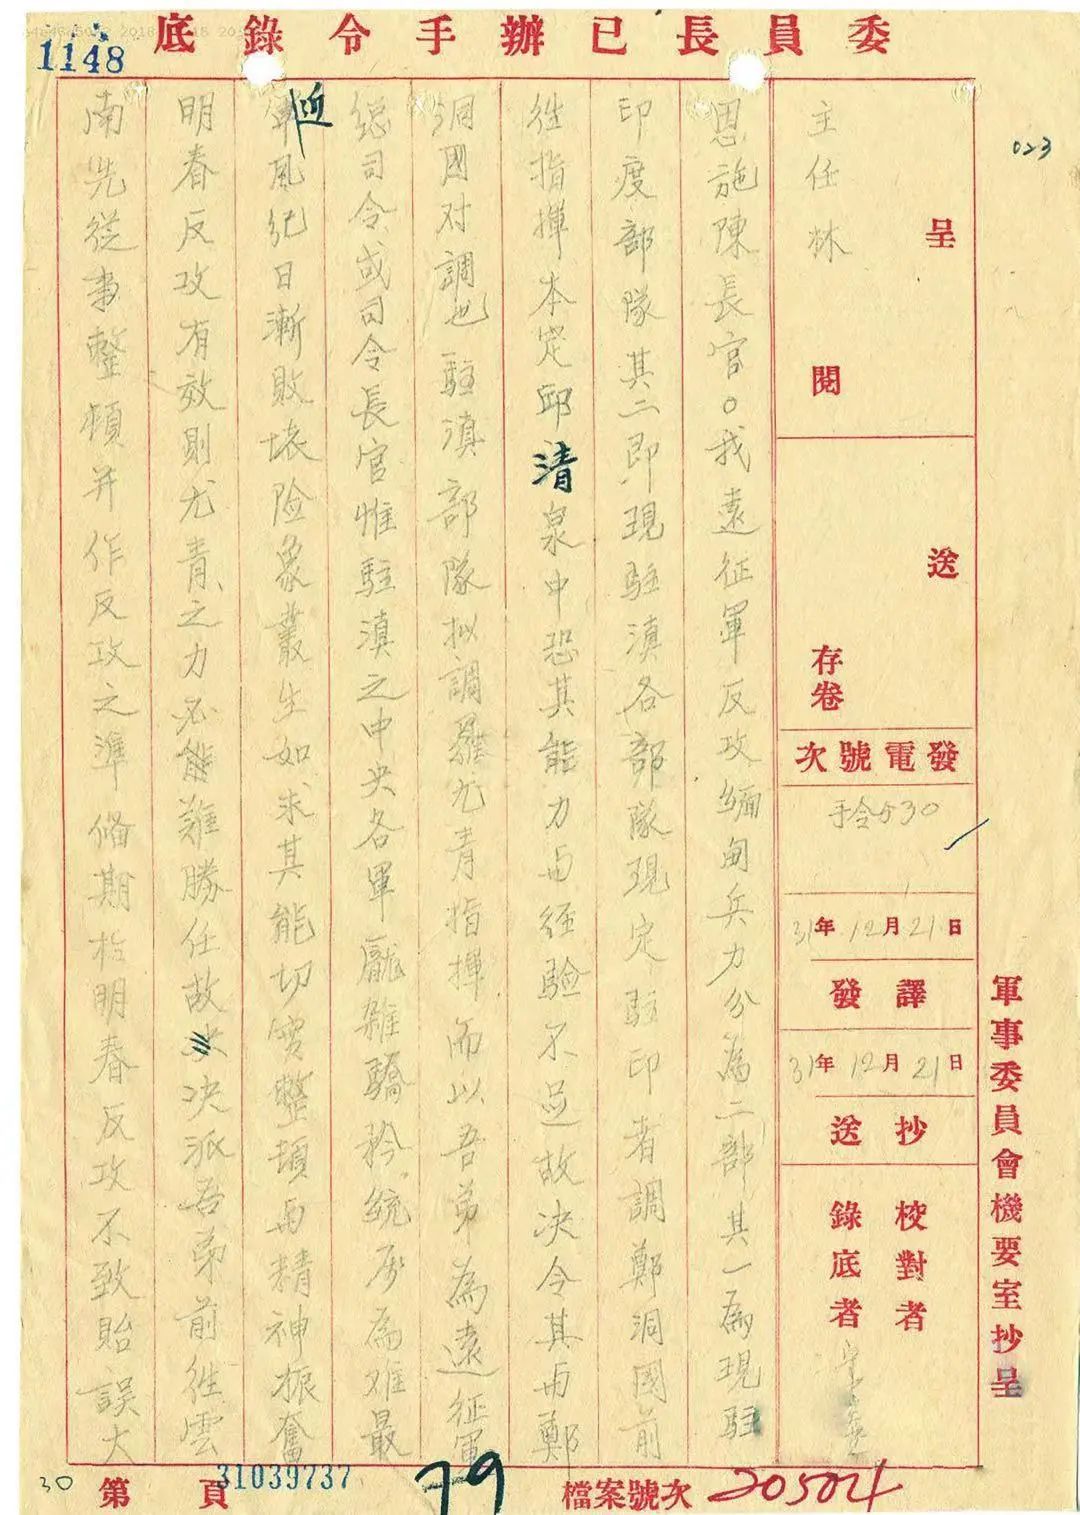 委員長已辦手令錄底
1148
023
呈
閱
主任林
送
存卷
發電號次
手令530
31年12月21日
譯發
31年12月21日
抄送
校對者
錄底者
軍事委員會機要室抄呈
恩施陳長官。我遠征軍反攻緬甸兵力分為二部其一為現駐
印度部隊其二即現駐滇各部隊現定駐印者調鄭洞國前
往指揮本定邱清泉中恐其能力与經驗不足故決令其与鄭
洞國对調也駐滇部隊拟調羅尤青指揮而以吾弟為遠征軍
総司令或司令長官惟駐滇之中央各軍龐雜驕矜統厉為难最
近軍風紀日漸敗壞险象叢生如求其能切實整頓与精神振奮
明春反攻有效則尤青之力必能難勝任故決派吾弟前往雲
南先從事整頓并作反攻之準备期於明春反攻不致貽誤大
30
第 頁
31039737
79
檔案號次 20504